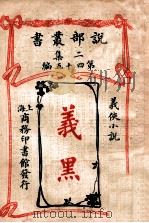 說部叢書
第二集四十五編
義俠小說
義黑
上海商務印書館發行